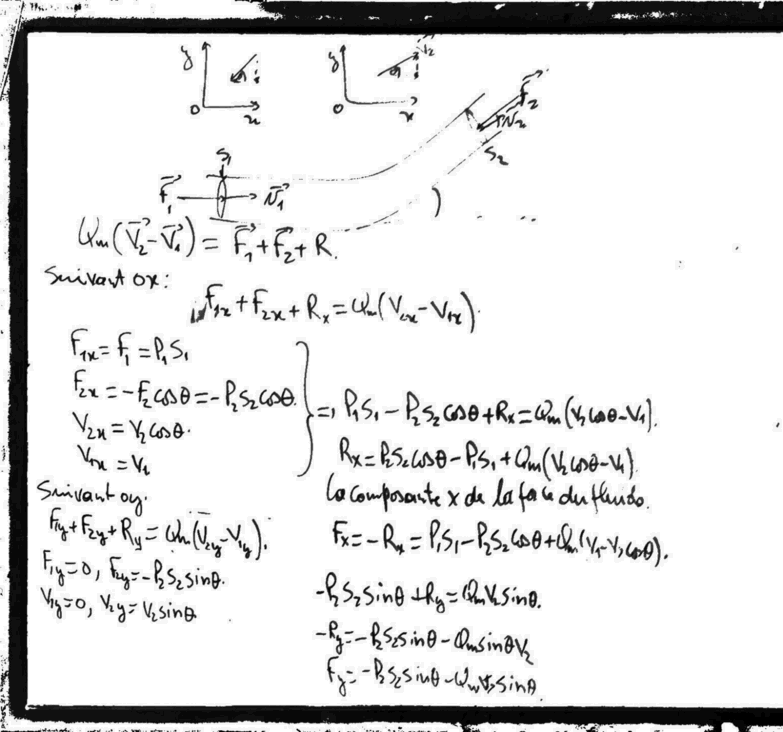 y
θ
O
x
y
V₂
θ
O
x
S₁
F₁
V₁
F₂
V₂
S₂
Qm(V₂-V₁) = F₁+F₂+R.
Suivant ox:
F1x+F2x+Rx=Qm(V2x-V1x)
F1x=F₁=P₁S₁
F2x=-F₂cosθ=-P₂S₂cosθ.
V2x=V₂cosθ.
V1x=V₁
=) P₁S₁-P₂S₂cosθ+Rx=Qm(V₂cosθ-V₁).
Rx=P₂S₂cosθ-P₁S₁+Qm(V₂cosθ-V₁)
la composante x de la force du fluide.
Fx=-Rx=P₁S₁-P₂S₂cosθ+Qm(V₁-V₂cosθ).
Suivant oy.
F1y+F2y+Ry=Qm(V2y-V1y).
F1y=0, F2y=-P₂S₂sinθ.
V1y=0, V2y=V₂sinθ
-P₂S₂sinθ+Ry=QmV₂sinθ.
-Ry=-P₂S₂sinθ-QmsinθV₂
Fy=-P₂S₂sinθ-QmV₂sinθ